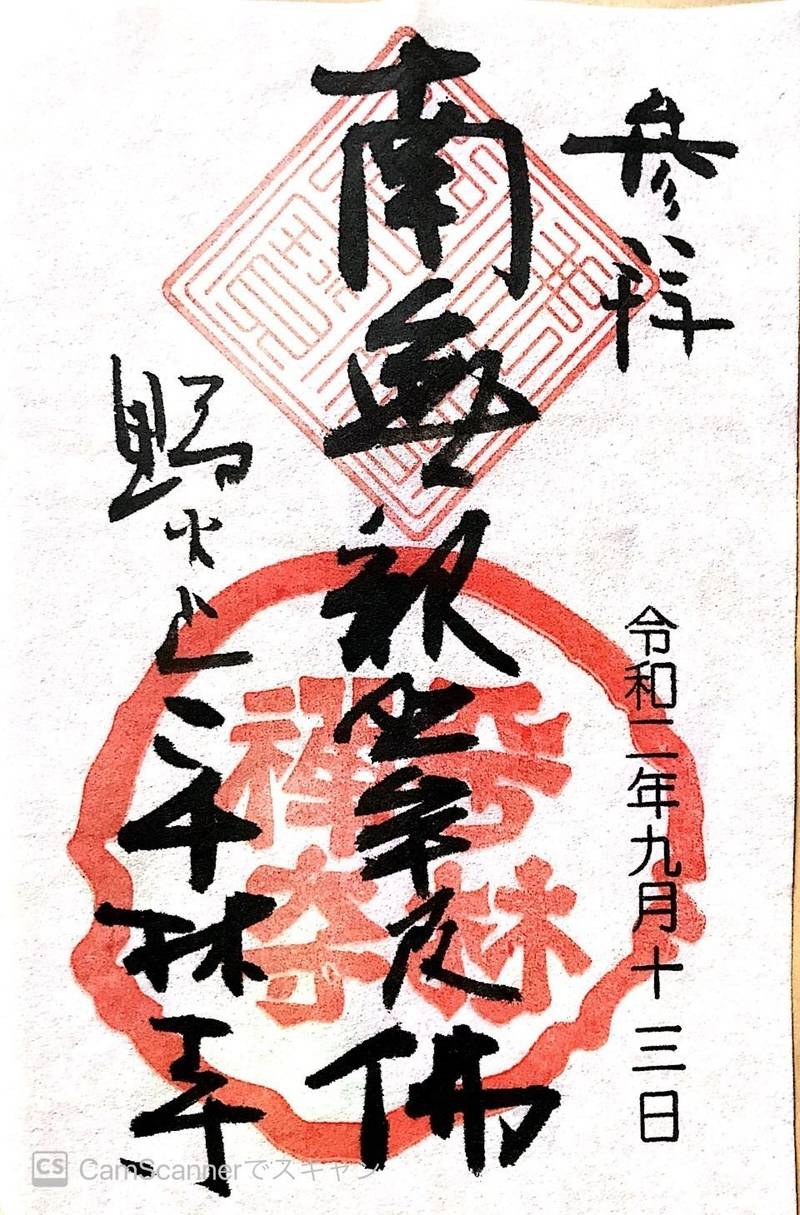 参拝
令和二年九月十三日
南無釈迦牟尼佛
野火止平林寺
平林
禪寺
CS CamScannerでスキャン